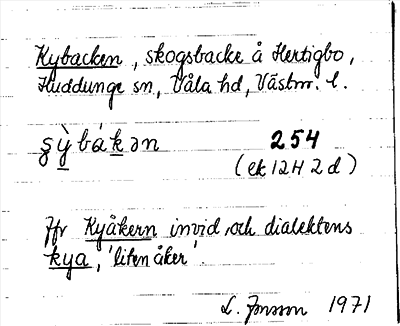 Kybacken, skogsbacke å Hertigbo,
Huddunge sn, Våla hd, Västm. l.
ṣỳbákən 254
(ek 12H 2d)
Jfr Kyåkern invid och dialektens
kya, 'liten åker'.
L. Jonsson 1971